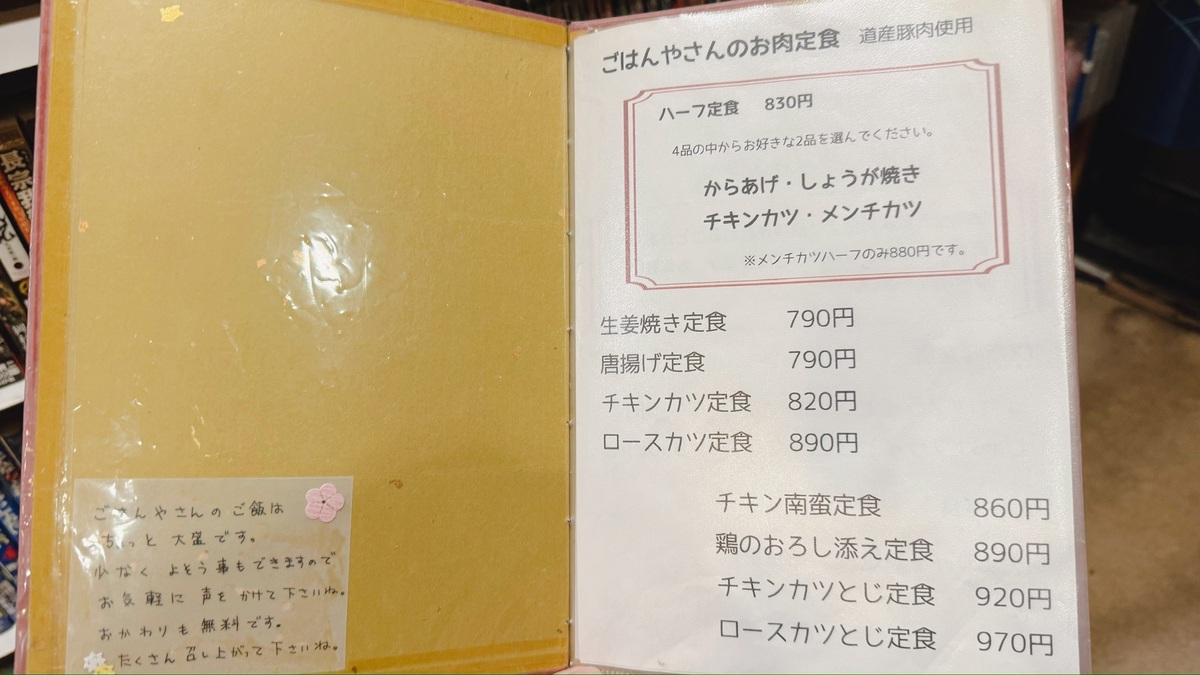 ごはんやさんのご飯は
ちょっと 大盛です。
少なく よそう事もできますので
お気軽に 声を かけて下さいね。
おかわりも 無料です。
たくさん 召し上がって下さいね。
ごはんやさんのお肉定食 道産豚肉使用
ハーフ定食 830円
4品の中からお好きな2品を選んでください。
からあげ・しょうが焼き
チキンカツ・メンチカツ
※メンチカツハーフのみ880円です。
生姜焼き定食 790円
唐揚げ定食 790円
チキンカツ定食 820円
ロースカツ定食 890円
チキン南蛮定食 860円
鶏のおろし添え定食 890円
チキンカツとじ定食 920円
ロースカツとじ定食 970円